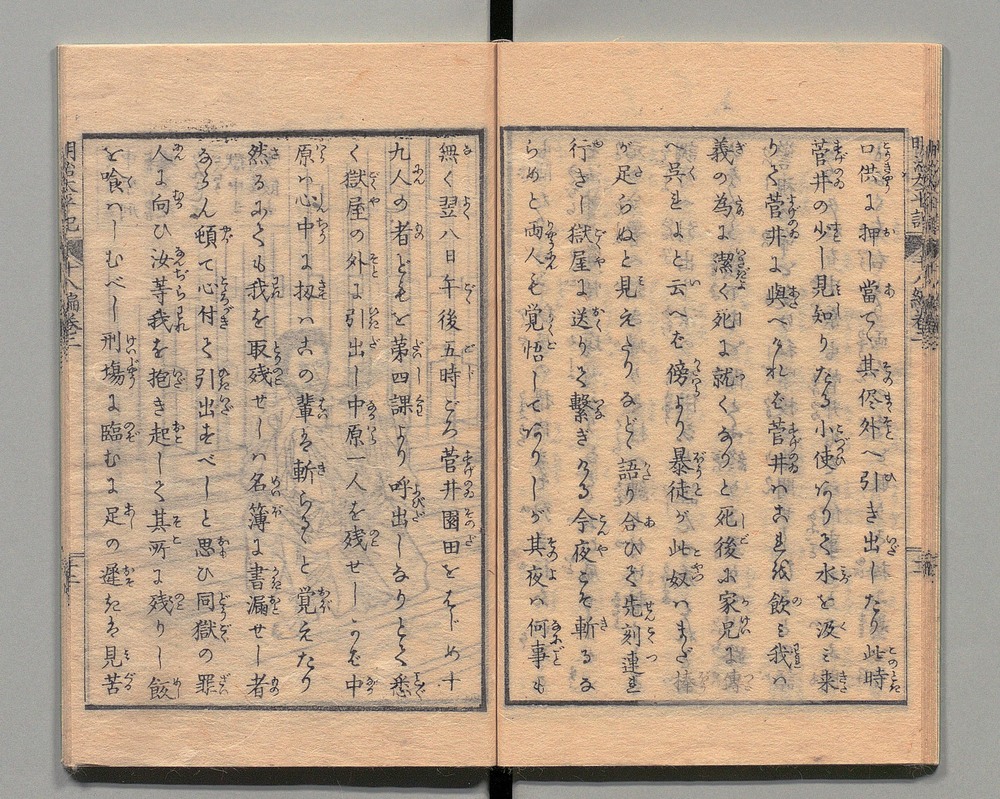 口供に押し當て其侭外へ引き出したり此時
菅井の少し見知りたる小使ありて水を汲ミ来
りて菅井に與へけれバ菅井ハこれを飲ミ我ハ
義の為に潔く死に就くなりと死後に家兄に傳
へ呉よと云へバ傍より暴徒が此奴ハまだ棒
が足らぬと見えたりなど語り合ひて先刻連れ
行きし獄屋に送りて繋ぎける今夜こそ斬るな
らめと両人も覚悟してありしが其夜ハ何事も
無く翌八日午後五時ごろ菅井園田をはじめ十
九人の者どもを第四課より呼出しなりとて悉
く獄屋の外に引出し中原一人を残せしかば中
原ハ心中に扨ハこの輩は斬らるゝと覚えたり
然るにても我を取残せしハ名簿に書漏せし者
ならん頓て心付て引出すべしと思ひ同獄の罪
人に向ひ汝等我を抱き起して其所に残りし飯
を喰ハしむべし刑場に臨むに足の遅きは見苦
明治太平記
十八編巻二
十二